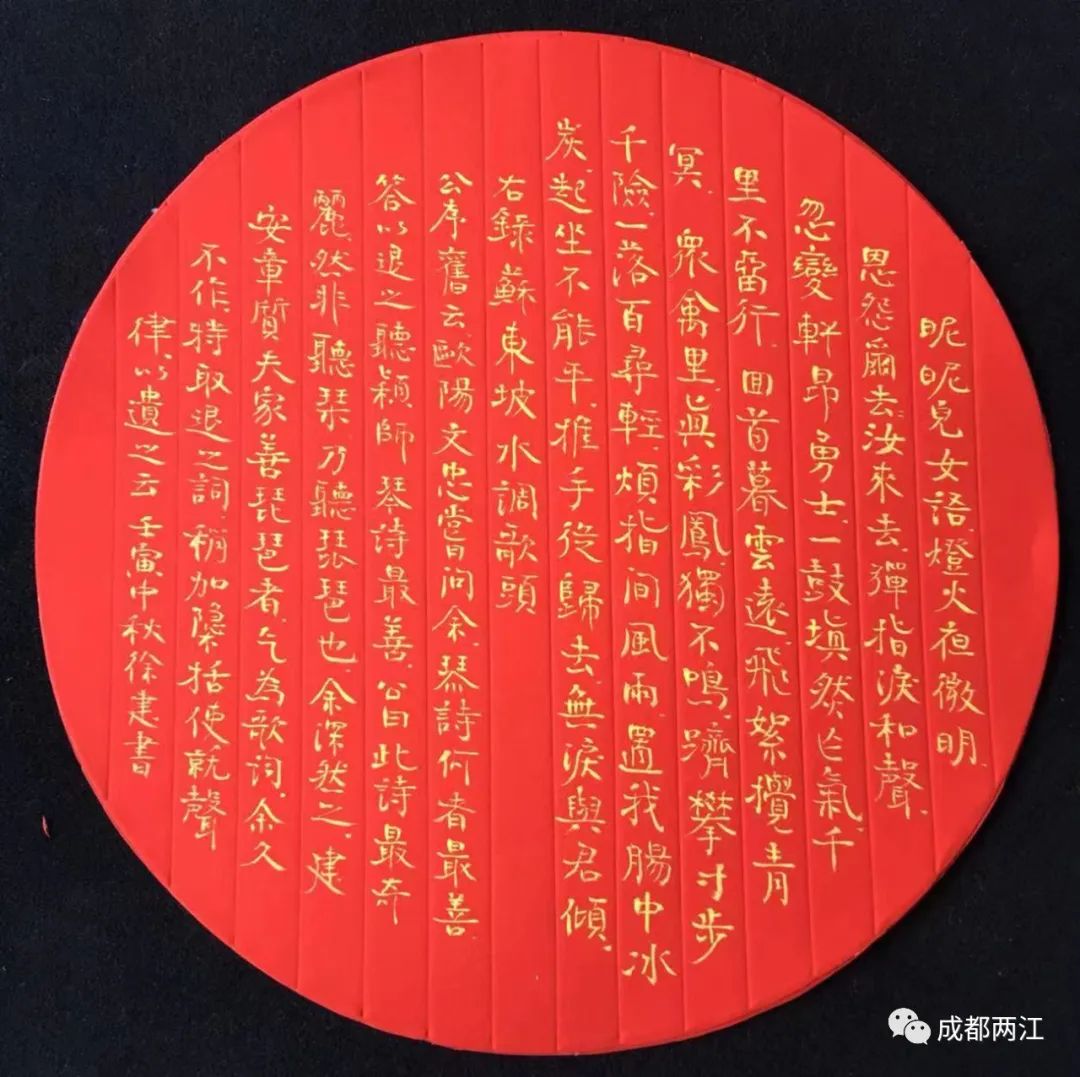 昵昵兒女語.燈火夜微明.
恩怨爾汝來去.彈指淚和聲.
忽變軒昂勇士.一鼓填然乍氣.千
里不留行.回首暮雲遠.飛絮攪青
冥.衆禽里.真彩鳳.獨不鳴.躋攀寸步
千險.一落百尋輕.煩指間風雨.置我腸中冰
炭.起坐不能平.推手從歸去.無淚與君傾.
右錄蘇東坡水調歌頭
公序舊云.歐陽文忠嘗問余.琴詩何者最善.
答以退之聽穎師琴詩最善.公曰此詩最奇
麗.然非聽琴.乃聽琵琶也.余深然之.建
安章質夫家善琵琶者.乞為歌詞.余久
不作.特取退之詞.稍加隱括使就聲
律.以遺之云 壬寅中秋徐建書
成都两江